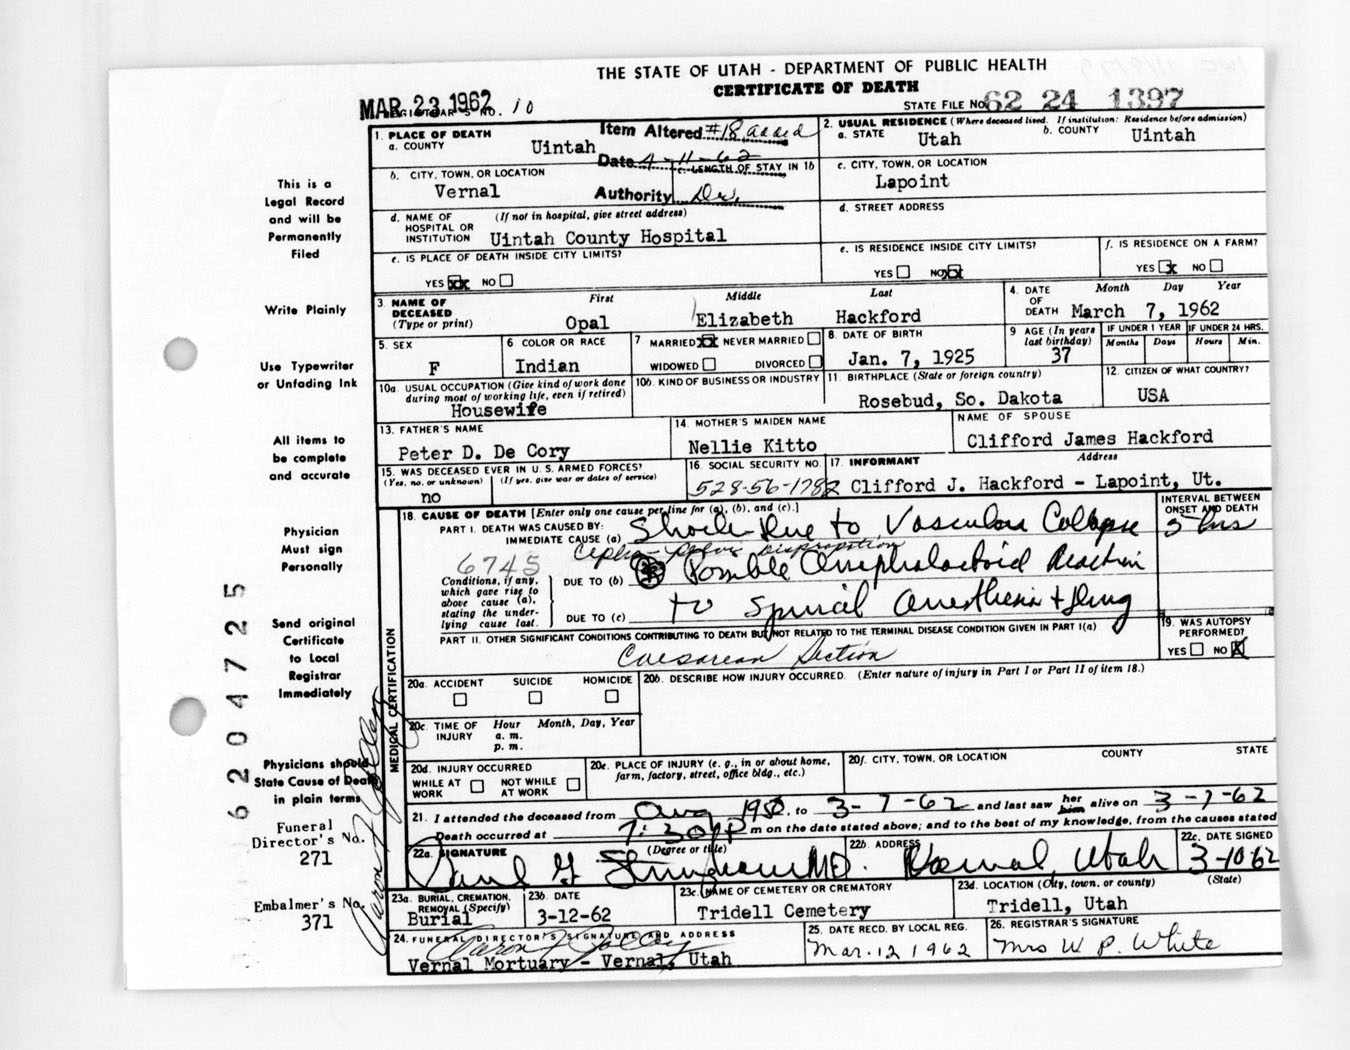 THE STATE OF UTAH - DEPARTMENT OF PUBLIC HEALTH
CERTIFICATE OF DEATH
MAR 23 1962
REGISTRAR'S NO. 10
STATE FILE No. 62 24 1397
1. PLACE OF DEATH
a. COUNTY
Uintah
Item Altered #18 added
Date 4-11-62
Authority Dr.
2. USUAL RESIDENCE (Where deceased lived. If institution: Residence before admission)
a. STATE
Utah
b. COUNTY
Uintah
b. CITY, TOWN, OR LOCATION
Vernal
c. LENGTH OF STAY IN 1b
c. CITY, TOWN, OR LOCATION
Lapoint
d. NAME OF HOSPITAL OR INSTITUTION
(If not in hospital, give street address)
Uintah County Hospital
d. STREET ADDRESS
e. IS PLACE OF DEATH INSIDE CITY LIMITS?
YES xx NO
e. IS RESIDENCE INSIDE CITY LIMITS?
YES NO xx
f. IS RESIDENCE ON A FARM?
YES x NO
3. NAME OF DECEASED
(Type or print)
First Middle Last
Opal Elizabeth Hackford
4. DATE OF DEATH
Month Day Year
March 7, 1962
5. SEX
F
6 COLOR OR RACE
Indian
7 MARRIED xx NEVER MARRIED
WIDOWED DIVORCED
8. DATE OF BIRTH
Jan. 7, 1925
9 AGE (In years last birthday)
37
IF UNDER 1 YEAR
Months Days
IF UNDER 24 HRS.
Hours Min.
10a. USUAL OCCUPATION (Give kind of work done during most of working life, even if retired)
Housewife
10b. KIND OF BUSINESS OR INDUSTRY
11. BIRTHPLACE (State or foreign country)
Rosebud, So. Dakota
12. CITIZEN OF WHAT COUNTRY?
USA
13. FATHER'S NAME
Peter D. De Cory
14. MOTHER'S MAIDEN NAME
Nellie Kitto
NAME OF SPOUSE
Clifford James Hackford
15. WAS DECEASED EVER IN U. S. ARMED FORCES?
(Yes, no, or unknown) (If yes, give war or dates of service)
no
16. SOCIAL SECURITY NO.
528-56-1782
17. INFORMANT Address
Clifford J. Hackford - Lapoint, Ut.
MEDICAL CERTIFICATION
18. CAUSE OF DEATH [Enter only one cause per line for (a), (b), and (c).]
PART I. DEATH WAS CAUSED BY:
IMMEDIATE CAUSE (a)
Shock Due to Vascular Collapse
INTERVAL BETWEEN ONSET AND DEATH
3 hrs
Cephlo-Pelvic Disproportion
6745
Conditions, if any, which gave rise to above cause (a), stating the underlying cause last.
DUE TO (b)
Possible Anaphalactoid Reaction
DUE TO (c)
to Spinal Anesthesia + drug
PART II. OTHER SIGNIFICANT CONDITIONS CONTRIBUTING TO DEATH BUT NOT RELATED TO THE TERMINAL DISEASE CONDITION GIVEN IN PART I(a)
Caesarean Section
19. WAS AUTOPSY PERFORMED?
YES NO X
20a. ACCIDENT SUICIDE HOMICIDE
20b. DESCRIBE HOW INJURY OCCURRED. (Enter nature of injury in Part I or Part II of item 18.)
20c. TIME OF INJURY
Hour Month, Day, Year
a. m.
p. m.
20d. INJURY OCCURRED
WHILE AT WORK NOT WHILE AT WORK
20e. PLACE OF INJURY (e. g., in or about home, farm, factory, street, office bldg., etc.)
20f. CITY, TOWN, OR LOCATION COUNTY STATE
21. I attended the deceased from Aug 1950, to 3-7-62 and last saw her him alive on 3-7-62
Death occurred at 7:30 P m on the date stated above; and to the best of my knowledge, from the causes stated
22a. SIGNATURE (Degree or title)
Paul G. M.D.
22b. ADDRESS
Vernal, Utah
22c. DATE SIGNED
3-10-62
23a. BURIAL, CREMATION, REMOVAL (Specify)
Burial
23b. DATE
3-12-62
23c. NAME OF CEMETERY OR CREMATORY
Tridell Cemetery
23d. LOCATION (City, town, or county) (State)
Tridell, Utah
24. FUNERAL DIRECTOR'S SIGNATURE AND ADDRESS
Vernal Mortuary - Vernal, Utah
25. DATE RECD. BY LOCAL REG.
Mar. 12 1962
26. REGISTRAR'S SIGNATURE
Mrs W. P. White
This is a
Legal Record
and will be
Permanently
Filed
Write Plainly
Use Typewriter
or Unfading Ink
All items to
be complete
and accurate
Physician
Must sign
Personally
Send original
Certificate
to Local
Registrar
Immediately
Physicians should
State Cause of Death
in plain terms
Funeral
Director's No.
271
Embalmer's No.
371
6204725